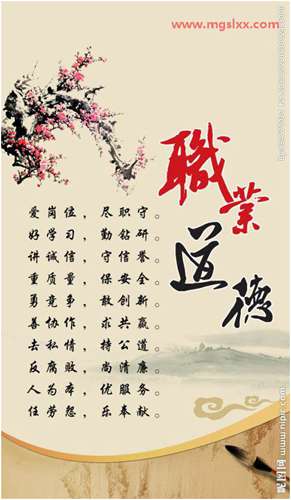 www.mgslxx.com
職業道德
爱岗位，尽职守。
好学习，勤钻研。
讲诚信，守信誉。
重质量，保安全。
勇竞争，敢创新。
善协作，求共赢。
去私情，持公道。
反腐败，尚清廉。
人为本，优服务。
任劳怨，乐奉献。
昵图网 www.nipic.com